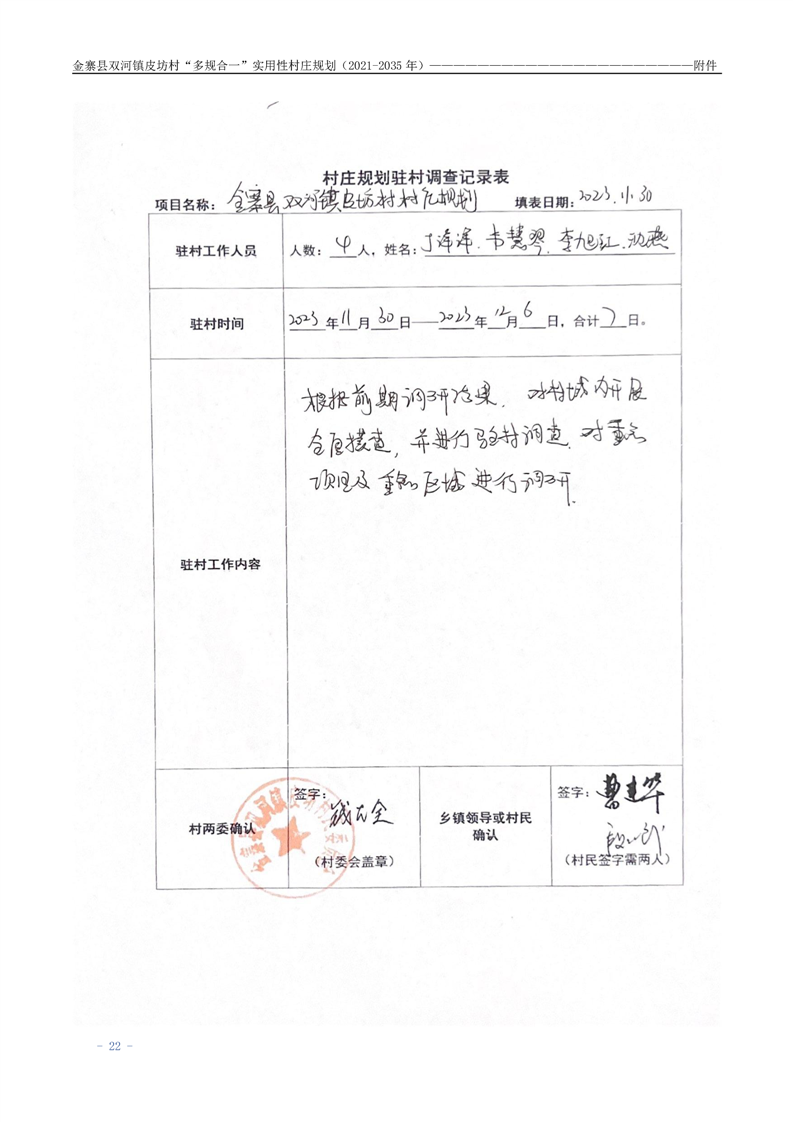 金寨县双河镇皮坊村“多规合一”实用性村庄规划（2021-2035 年）——————————————————————附件
村庄规划驻村调查记录表
项目名称：金寨县双河镇皮坊村村庄规划 填表日期：2023.11.30
驻村工作人员 人数：4人，姓名：丁泽泽、韦慧翠、李旭红、
驻村时间 2023年11月30日——2023年12月6日，合计7日。
根据前期调研结果，对村域内开展
全面摸查，并进行驻村调查，对重点
项目及重点区域进行调研
驻村工作内容
签字： 签字：曹建华
村两委确认 乡镇领导或村民
确认
（村委会盖章） （村民签字需两人）
- 22 -